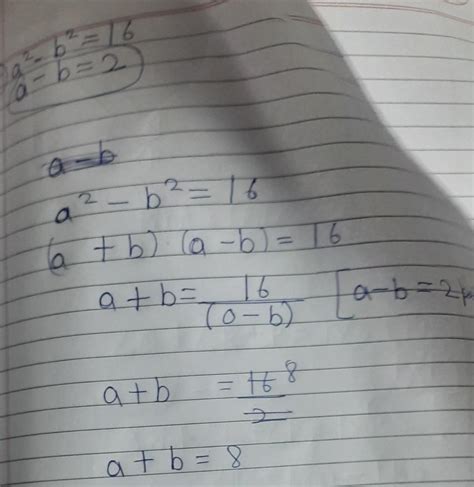 a² - b² = 16
a - b = 2
a - b
a² - b² = 16
(a + b) (a - b) = 16
a + b = 16/(a - b) [a - b = 2
a + b = 16/2 8
a + b = 8